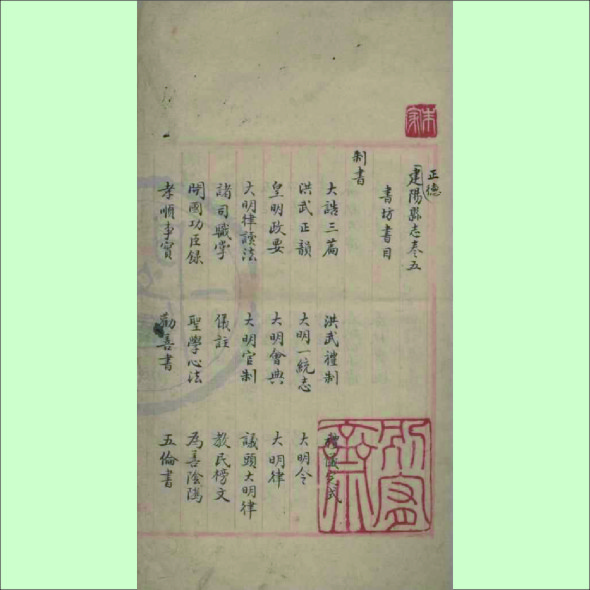 正德
建陽縣志卷五
書坊書目
制書
大誥三篇 洪武禮制 禮儀定式
洪武正韻 大明一統志 大明令
皇明政要 大明會典 大明律
大明律讀法 大明官制 議頭大明律
諸司職掌 儀註 教民榜文
開國功臣錄 聖學心法 為善陰隲
孝順事實 勸善書 五倫書